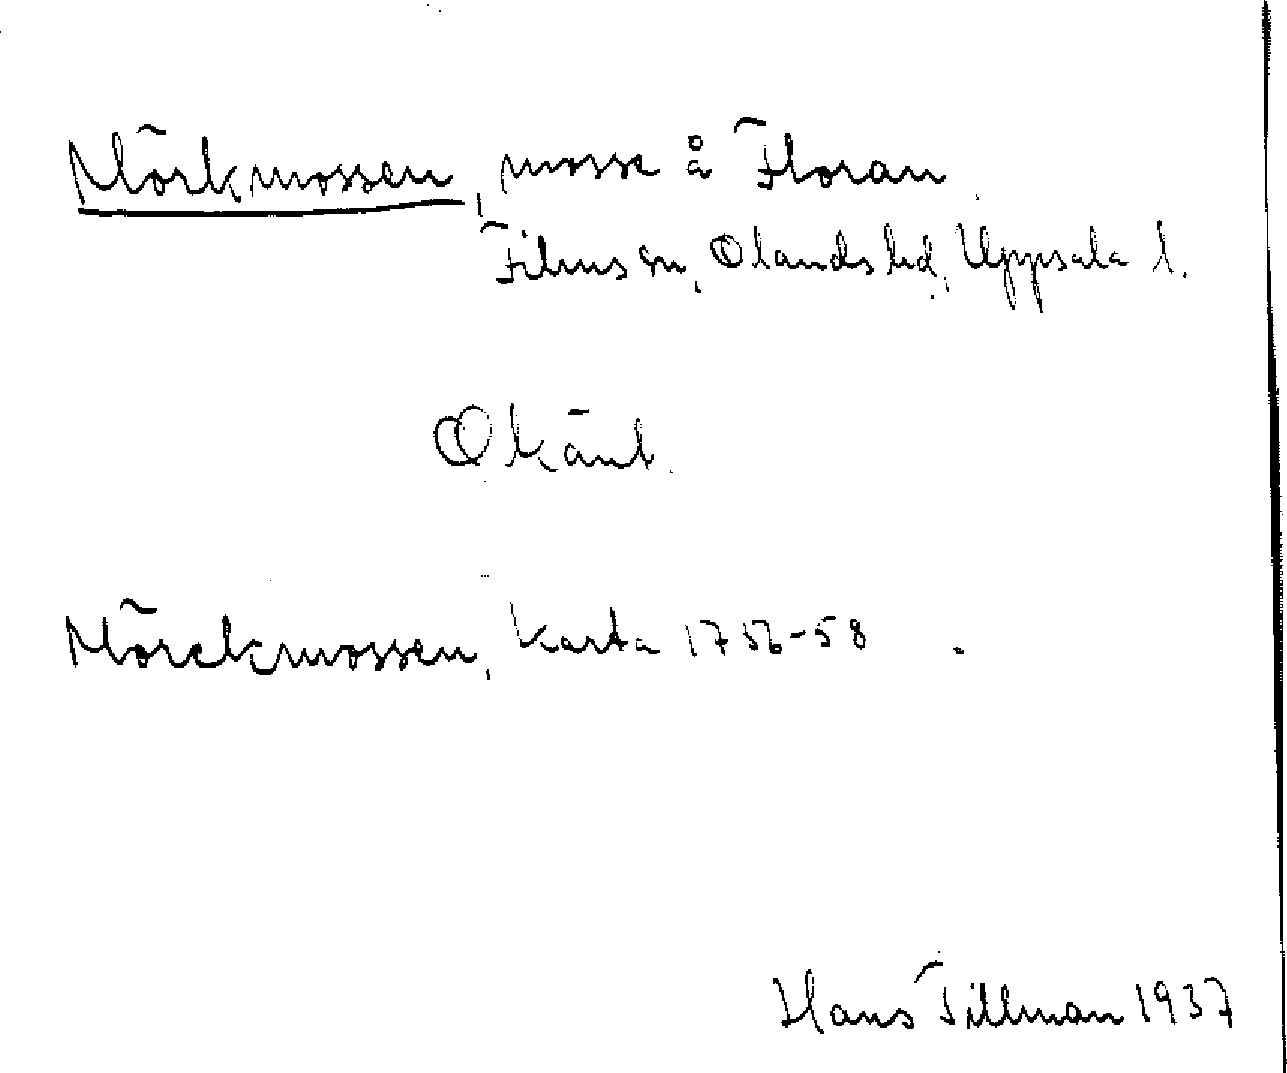 Mörkmossen, mosse å Floran
Films sn, Olands hd, Uppsala l.
Okänt.
Mörckmossen, karta 1756-58.
Hans Tillman 1937